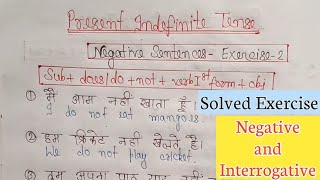 Present Indefinite Tense
Negative Sentences- Exercise-2
Sub+ does/do +not + verb Ist form + obj
① मैं आम नहीं खाता हूँ।
I do not eat mangoes.
② हम क्रिकेट नहीं खेलते हैं।
We do not play cricket.
③ तुम अपना पाठ याद नहीं
Solved Exercise
Negative
and
Interrogative